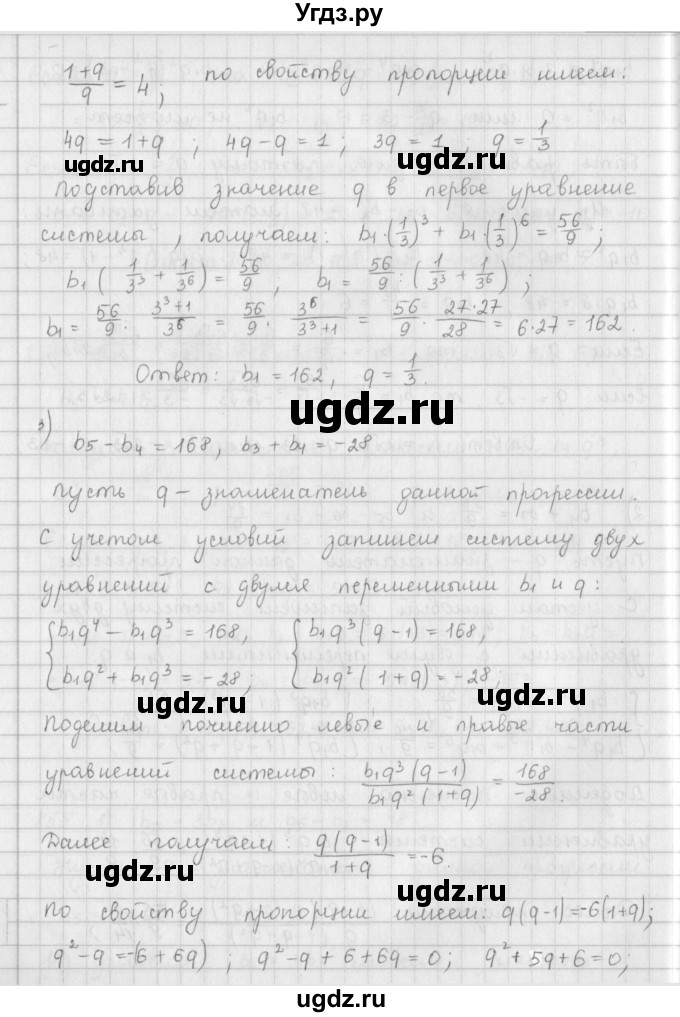 Угдз.ру
(1+q)/q = 4; по свойству пропорции имеем:
4q = 1+q ; 4q-q = 1 ; 3q = 1 ; q = 1/3
ugdz.ru ugdz.ru
Подставив значение q в первое уравнение
системы , получаем: b₁·(1/3)³ + b₁·(1/3)⁶ = 56/9 ;
ugdz.ru ugdz.ru
b₁ ( 1/3³ + 1/3⁶ ) = 56/9 , b₁ = 56/9 : ( 1/3³ + 1/3⁶ ) ;
b₁ = 56/9 · (3³+1)/3⁶ = 56/9 · 3⁶/(3³+1) = 56/9 · 27·27/28 = 6·27 = 162 .
Ответ: b₁ = 162 , q = 1/3 .
ugdz.ru
3) b₅ - b₄ = 168 , b₃ + b₄ = -28
Пусть q - знаменатель данной прогрессии .
ugdz.ru ugdz.ru
С учетом условий запишем систему двух
уравнений с двумя переменными b₁ и q :
{ b₁q⁴ - b₁q³ = 168, { b₁q³ ( q - 1 ) = 168,
b₁q² + b₁q³ = -28 ; b₁q² ( 1 + q ) = -28 ;
ugdz.ru ugdz.ru
Поделим почленно левые и правые части
уравнений системы : b₁q³ (q-1)/b₁q² (1+q) = 168/-28 .
ugdz.ru
Далее получаем : q (q-1)/1+q = -6.
ugdz.ru ugdz.ru
По свойству пропорции имеем: q (q-1) = -6(1+q) ;
q² - q = -(6 + 6q) ; q² - q + 6 + 6q = 0 ; q² + 5q + 6 = 0 ;
ugdz.ru